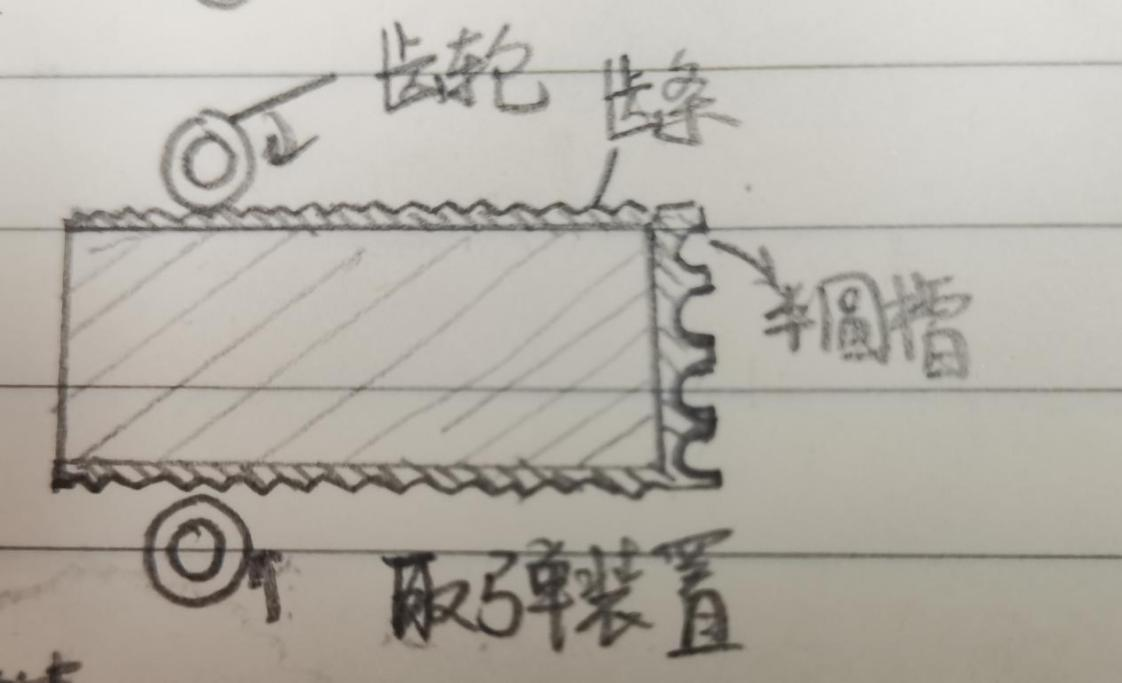 齿轮
齿条
半圆槽
取弹装置